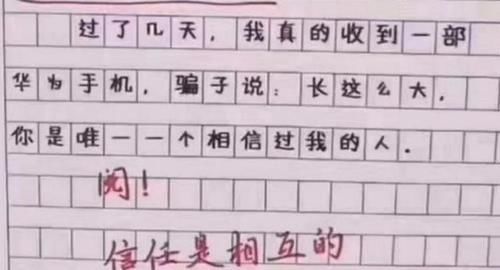 过了几天，我真的收到一部
华为手机，骗子说：长这么大，
你是唯一一个相信过我的人．
阅！
信任是相互的